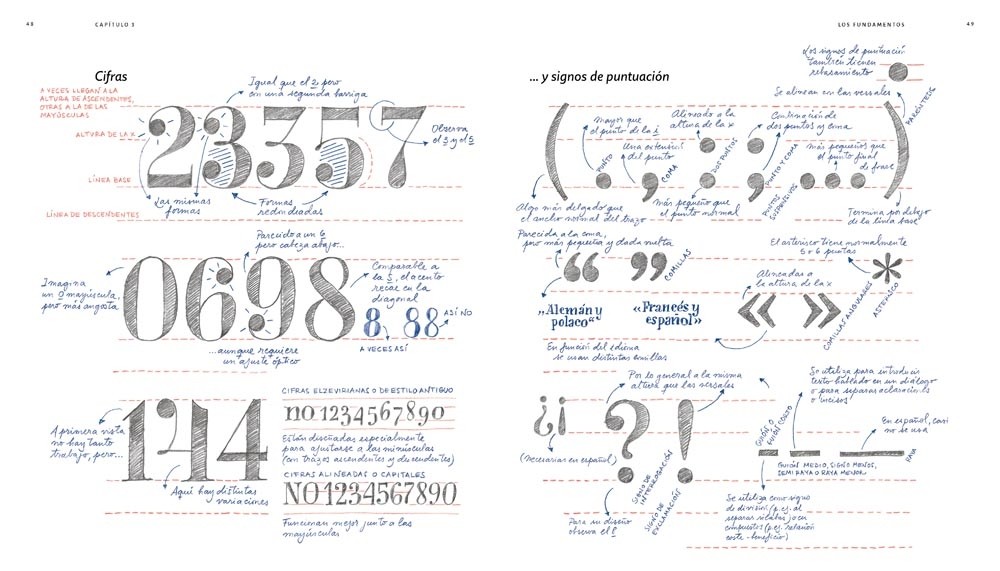 48
CAPÍTULO 3
LOS FUNDAMENTOS
49
Cifras
A VECES LLEGAN A LA
ALTURA DE ASCENDENTES,
OTRAS A LA DE LAS
MAYÚSCULAS
ALTURA DE LA X
LÍNEA BASE
LÍNEA DE DESCENDENTES
Igual que el 2 pero
con una segunda barriga
Observa
el 3 y el 5
23357
Las mismas
formas
Formas
redondeadas
Parecido a un 6
pero cabeza abajo...
Imagina
un O mayúscula,
pero más angosta
0698
Comparable a
la S, el acento
recae en la
diagonal
8 88
ASÍ NO
A VECES ASÍ
...aunque requiere
un ajuste óptico
A primera vista
no hay tanto
trabajo, pero...
114
Aquí hay distintas
variaciones
CIFRAS ELZEVIRIANAS O DE ESTILO ANTIGUO
no 1234567890
Están diseñadas especialmente
para ajustarse a las minúsculas
(con trazos ascendentes y descendentes)
CIFRAS ALINEADAS O CAPITALES
NO1234567890
Funcionan mejor junto a las
mayúsculas
... y signos de puntuación
Los signos de puntuación
también tienen
rebasamiento
Se alinean con las versales
PARÉNTESIS
Mayor que
el punto de la i
Alineado a la
altura de la x
Combinación de
dos puntos y coma
Una extensión
del punto
más pequeños que
el punto final
de frase
( . , : ; ... )
PUNTO
COMA
DOS PUNTOS
PUNTO Y COMA
PUNTOS
SUSPENSIVOS
Algo más delgado que
el ancho normal del trazo
más pequeño que
el punto normal
Termina por debajo
de la línea base
Parecida a la coma,
pero más pequeña y dada vuelta
“ ”
COMILLAS
El asterisco tiene normalmente
5 o 6 puntas
*
ASTERISCO
Alineadas a
la altura de la x
« »
COMILLAS ANGULARES
„Alemán y
polaco“
«Francés y
español»
En función del idioma
se usan distintas comillas
Por lo general a la misma
altura que las versales
¿¡ ? !
(Necesarias en español)
SIGNO DE
INTERROGACIÓN
SIGNO DE
EXCLAMACIÓN
Para su diseño
observa el
Se utiliza para introducir
texto hablado en un diálogo
o para separar aclaraciones
o incisos
En español, casi
no se usa
GUIÓN O
GUIÓN CORTO
- – —
RAYA
GUIÓN MEDIO, SIGNO MENOS,
SEMI RAYA O RAYA MENOR
Se utiliza como signo
de división (p.ej. al
separar sílabas) o en
compuestos (p.ej. relación
coste-beneficio)